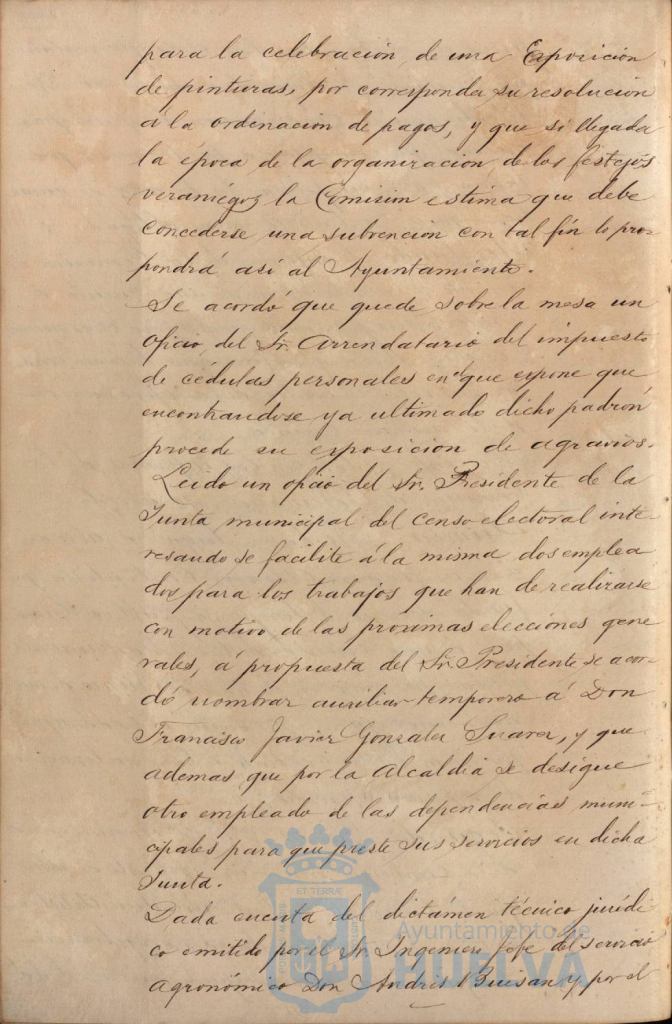 para la celebración de una Exposición
de pinturas, por corresponder su resolución
á la ordenacion de pagos, y que si llegada
la época de la organizacion de los festejos
veraniegos la Comision estima que debe
concederse una subvencion con tal fin lo pro-
pondrá asi al Ayuntamiento.
Se acordó que quede sobre la mesa un
oficio del Sr. Arrendatario del impuesto
de cédulas personales en el que expone que
encontrandose ya ultimado dicho padron
procede su exposicion de agravios.
Leido un oficio del Sr. Presidente de la
Junta municipal del censo electoral inte-
resando se facilite á la misma dos emplea
dos para los trabajos que han de realizarse
con motivo de las proximas elecciones gene
rales, á propuesta del Sr. Presidente se acor-
dó nombrar auxiliar temporero á Don
Francisco Javier Gonzalez Suarez, y que
ademas que por la Alcaldia se designe
otro empleado de las dependencias muni-
cipales para que preste sus servicios en dicha
Junta.
Dada cuenta del dictámen técnico juridi-
co emitido por el Sr. Ingeniero Jefe del servicio
agronómico Don Andrés y por el
Ayuntamiento de
HUELVA